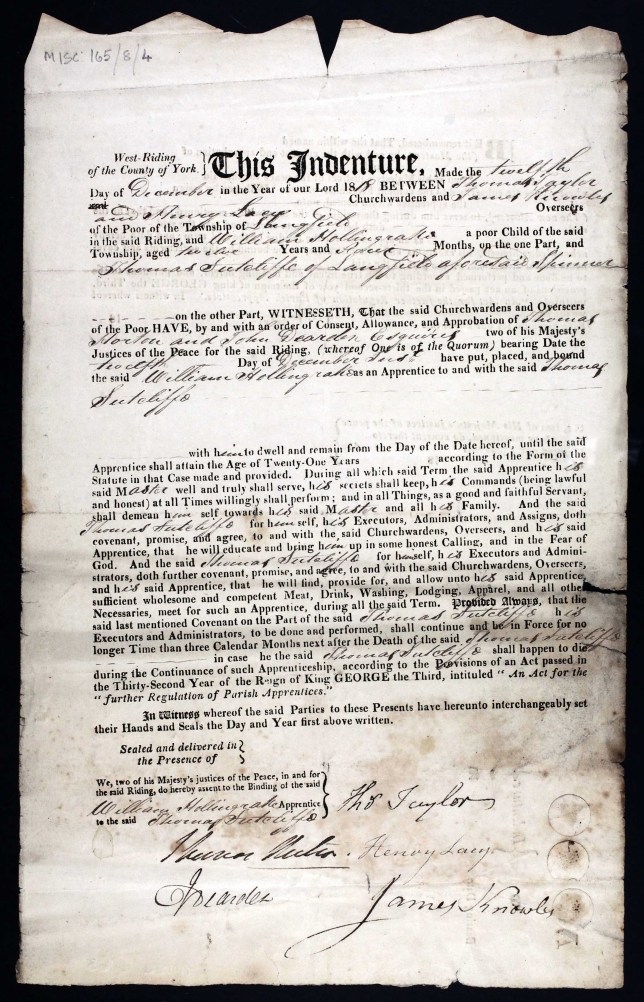 MISC 165/8/4
West-Riding
of the County of York. } This Indenture, Made the twelfth
Day of December in the Year of our Lord 18 BETWEEN Thomas Taylor
Churchwardens and James Knowles
and Henry Lacy Overseers
of the Poor of the Township of Langfield
in the said Riding, and William Hollingrake a poor Child of the said
Township, aged twelve Years and Months, on the one Part, and
Thomas Sutcliffe of Langfield aforesaid Spinner
on the other Part, WITNESSETH, That the said Churchwardens and Overseers
of the Poor HAVE, by and with an order of Consent, Allowance, and Approbation of Thomas
Horton and John Dearden Esquires two of his Majesty's
Justices of the Peace for the said Riding, (whereof One is of the Quorum) bearing Date the
twelfth Day of December Inst have put, placed, and bound
the said William Hollingrake as an Apprentice to and with the said Thomas
Sutcliffe
with him to dwell and remain from the Day of the Date hereof, until the said
Apprentice shall attain the Age of Twenty-One Years according to the Form of the
Statute in that Case made and provided. During all which said Term the said Apprentice his
said Master well and truly shall serve, his secrets shall keep, his Commands (being lawful
and honest) at all Times willingly shall perform; and in all Things, as a good and faithful Servant,
shall demean him self towards his said Master and all his Family. And the said
Thomas Sutcliffe for himself, his Executors, Administrators, and Assigns, doth
covenant, promise, and agree, to and with the said Churchwardens, Overseers, and his said
Apprentice, that he will educate and bring him up in some honest Calling, and in the Fear of
God. And the said Thomas Sutcliffe for himself, his Executors and Admini-
strators, doth further covenant, promise, and agree, to and with the said Churchwardens, Overseers,
and his said Apprentice, that he will find, provide for, and allow unto his said Apprentice,
sufficient wholesome and competent Meat, Drink, Washing, Lodging, Apparel, and all other
Necessaries, meet for such an Apprentice, during all the said Term. Provided always, that the
said last mentioned Covenant on the Part of the said Thomas Sutcliffe his
Executors and Administrators, to be done and performed, shall continue and be in Force for no
longer Time than three Calendar Months next after the Death of the said Thomas Sutcliffe
in case he the said Thomas Sutcliffe shall happen to die
during the Continuance of such Apprenticeship, according to the Provisions of an Act passed in
the Thirty-Second Year of the Reign of King GEORGE the Third, intituled "An Act for the
"further Regulation of Parish Apprentices."
In Witness whereof the said Parties to these Presents have hereunto interchangeably set
their Hands and Seals the Day and Year first above written.
Sealed and delivered in
the Presence of
We, two of his Majesty's justices of the Peace, in and for
the said Riding, do hereby assent to the Binding of the said
William Hollingrake Apprentice
to the said Thomas Sutcliffe
Thos Taylor
Henry Lacy
J Dearden
James Knowles